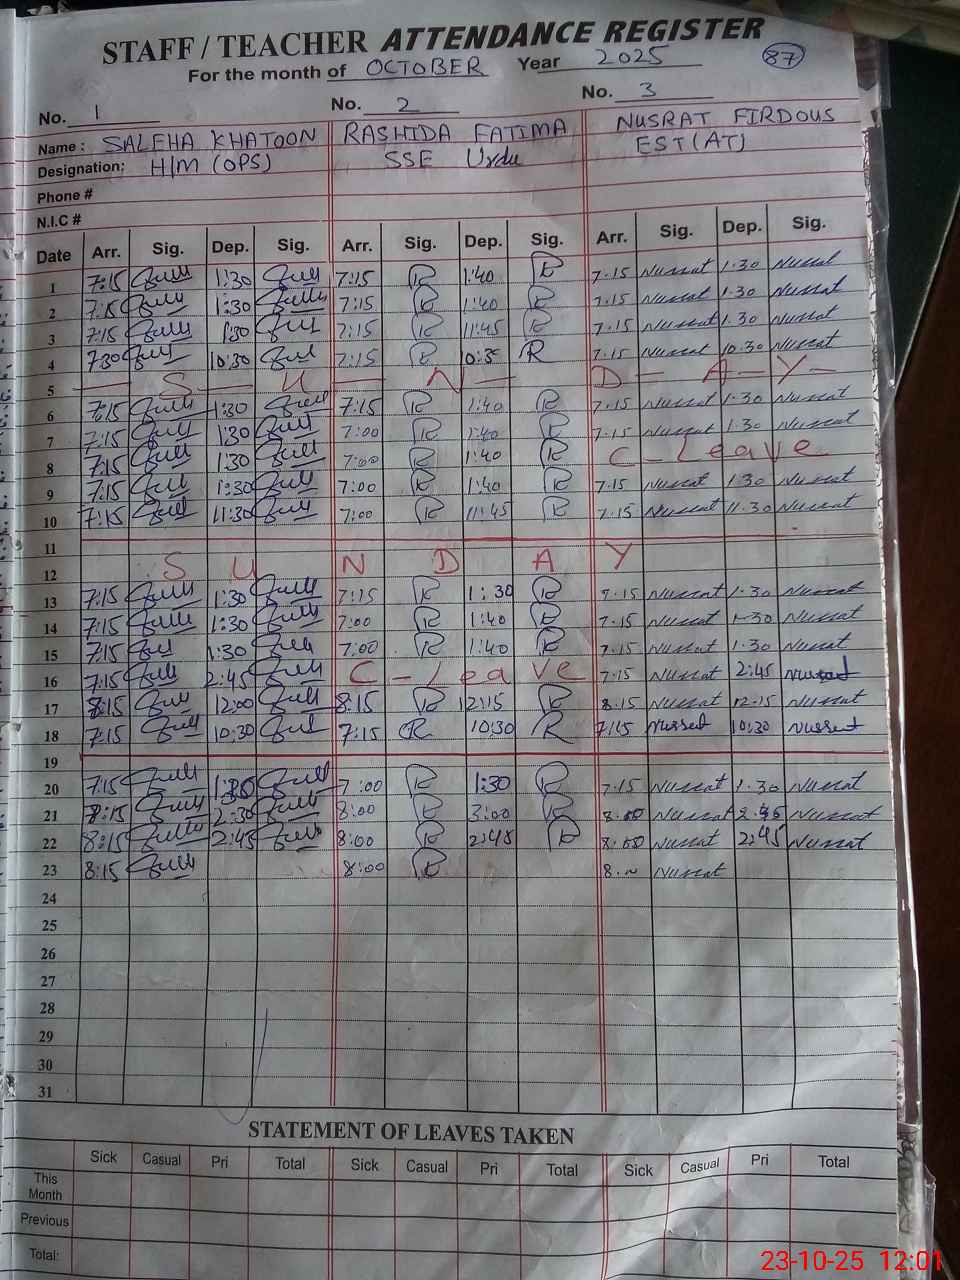 STAFF / TEACHER ATTENDANCE REGISTER
For the month of OCTOBER Year 2025 87
No. 1 No. 2 No. 3
Name : SALEHA KHATOON RASHIDA FATIMA NUSRAT FIRDOUS
Designation: H/M (OPS) SSE Urdu EST(AT)
Phone #
N.I.C #
Date Arr. Sig. Dep. Sig. Arr. Sig. Dep. Sig. Arr. Sig. Dep. Sig.
1 7:15 1:30 7:15 R 1:40 R 7.15 Nussat 1.30 Nussat
2 7:15 1:30 7:15 R 1:40 R 7.15 Nussat 1.30 Nussat
3 7:15 1:30 7:15 R 11:45 R 7.15 Nussat 1.30 Nussat
4 7:30 10:30 7:15 R R 7.15 Nussat 10.30 Nussat
5 S U N D A Y
6 7:15 1:30 7:15 R 1:40 R 7.15 Nussat 1.30 Nussat
7 7:15 1:30 7:00 R 1:40 R 7.15 Nussat 1.30 Nussat
8 7:15 1:30 7:00 R 1:40 R C-Leave
9 7:15 1:30 7:00 R 1:40 R 7.15 Nussat 1.30 Nussat
10 7:15 11:30 7:00 R 11:45 R 7.15 Nussat 11.30 Nussat
11
12 S U N D A Y
13 7:15 1:30 7:15 R 1:30 R 7.15 Nussat 1.30 Nussat
14 7:15 1:30 7:00 R 1:40 R 7.15 Nussat 1-30 Nussat
15 7:15 1:30 7:00 R 1:40 R 7.15 Nussat 1.30 Nussat
16 7:15 2:45 C-Leave 7:15 Nussat 2:45 Nussat
17 8:15 12:00 8:15 R 12:15 R 8.15 Nussat 12.15 Nussat
18 7:15 10:30 7:15 R 10:30 R 7:15 Nussat 10:30 Nussat
19
20 7:15 7:00 R 1:30 R 7.15 Nussat 1.30 Nussat
21 8:15 2:30 8:00 R 3:00 R Nussat Nussat
22 8:15 2:45 8:00 R 2:45 R Nussat 2:45 Nussat
23 8:15 8:00 R Nussat
24
25
26
27
28
29
30
31
STATEMENT OF LEAVES TAKEN
Sick Casual Pri Total Sick Casual Pri Total Sick Casual Pri Total
This Month
Previous
Total:
23-10-25 12:01